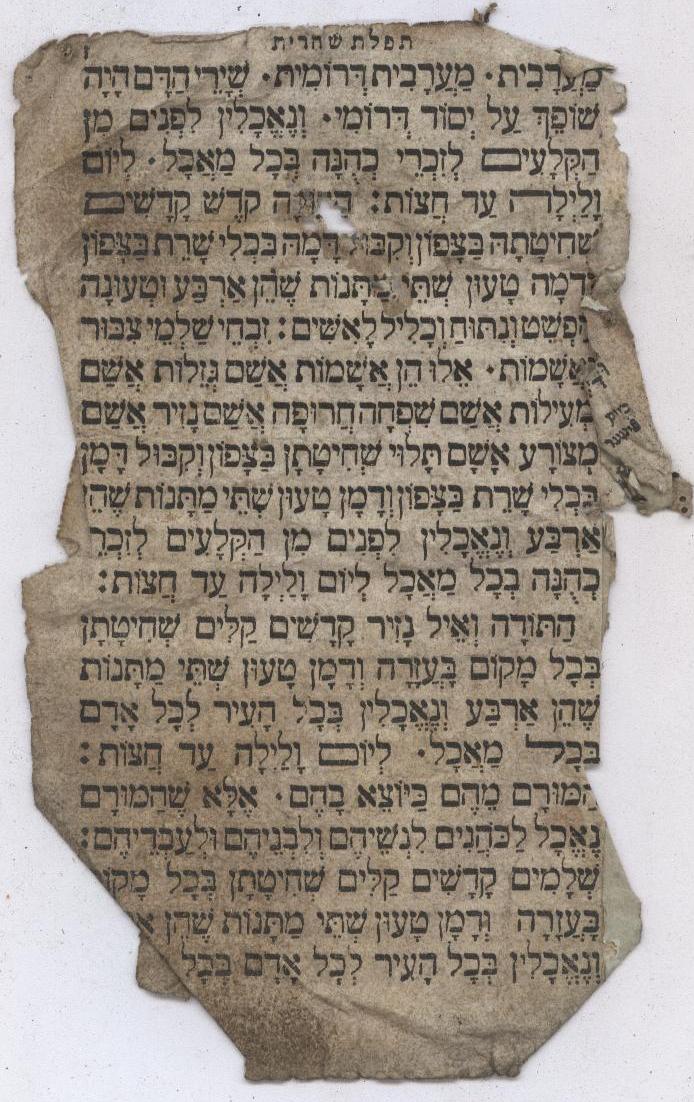 תפלת שחרית
מַעֲרָבִית· מַעֲרָבִית דְּרוֹמִית· שְׁיָרֵי הַדָּם הָיָה
שׁוֹפֵךְ עַל יְסוֹד דְּרוֹמִי· וְנֶאֱכָלִין לִפְנִים מִן
הַקְּלָעִים לְזִכְרֵי כְהֻנָּה בְּכָל מַאֲכָל· לְיוֹם
וָלַיְלָה עַד חֲצוֹת: קֹדֶשׁ קָדָשִׁים
שְׁחִיטָתָהּ בַּצָּפוֹן וְקִבּוּל דָּמָהּ בִּכְלֵי שָׁרֵת בַּצָּפוֹן
וְדָמָהּ טָעוּן שְׁתֵּי מַתָּנוֹת שֶׁהֵן אַרְבַּע וּטְעוּנָה
הֶפְשֵׁט וְנִתּוּחַ וְכָלִיל לָאִשִּׁים: זִבְחֵי שַׁלְמֵי צִבּוּר
וַאֲשָׁמוֹת· אֵלּוּ הֵן אֲשָׁמוֹת אֲשַׁם גְּזֵלוֹת אֲשַׁם
מְעִילוֹת אֲשַׁם שִׁפְחָה חֲרוּפָה אֲשַׁם נָזִיר אֲשַׁם
מְצוֹרָע אָשָׁם תָּלוּי שְׁחִיטָתָן בַּצָּפוֹן וְקִבּוּל דָּמָן
בִּכְלֵי שָׁרֵת בַּצָּפוֹן וְדָמָן טָעוּן שְׁתֵּי מַתָּנוֹת שֶׁהֵן
אַרְבַּע וְנֶאֱכָלִין לִפְנִים מִן הַקְּלָעִים לְזִכְרֵי
כְהֻנָּה בְּכָל מַאֲכָל לְיוֹם וָלַיְלָה עַד חֲצוֹת:
הַתּוֹדָה וְאֵיל נָזִיר קָדָשִׁים קַלִּים שְׁחִיטָתָן
בְּכָל מָקוֹם בָּעֲזָרָה וְדָמָן טָעוּן שְׁתֵּי מַתָּנוֹת
שֶׁהֵן אַרְבַּע וְנֶאֱכָלִין בְּכָל הָעִיר לְכָל אָדָם
בְּכָל מַאֲכָל· לְיוֹם וָלַיְלָה עַד חֲצוֹת:
הַמּוּרָם מֵהֶם כַּיּוֹצֵא בָהֶם· אֶלָּא שֶׁהַמּוּרָם
נֶאֱכָל לַכֹּהֲנִים לִנְשֵׁיהֶם וְלִבְנֵיהֶם וּלְעַבְדֵיהֶם:
שְׁלָמִים קָדָשִׁים קַלִּים שְׁחִיטָתָן בְּכָל מָקוֹ
בָּעֲזָרָה וְדָמָן טָעוּן שְׁתֵּי מַתָּנוֹת שֶׁהֵן
וְנֶאֱכָלִין בְּכָל הָעִיר לְכָל אָדָם בְּכָל